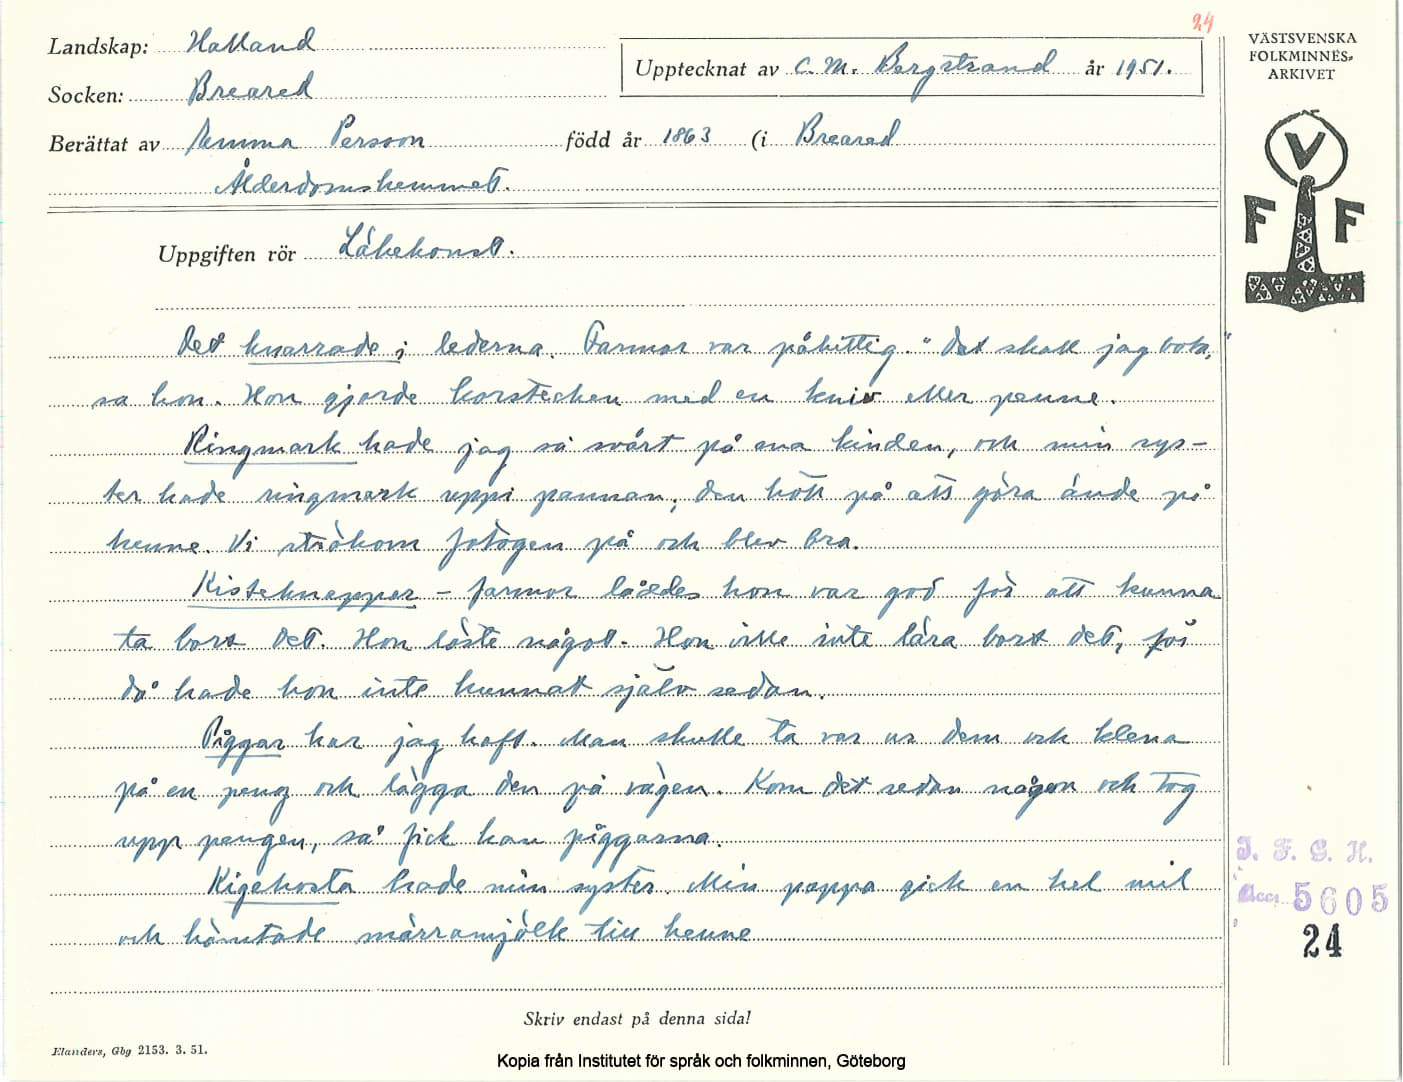 24
Landskap: Halland
Upptecknat av C. M. Bergstrand år 1951.
Socken: Breared
Berättat av Emma Person född år 1863 (i Breared
Ålderdomshemmet.
VÄSTSVENSKA
FOLKMINNES-
ARKIVET
V
F F
Uppgiften rör Läkekonst.
Det knarrade i lederna. Farmor var påhittig. "Det skall jag bota,"
sa hon. Hon gjorde korstecken med en kniv eller penne.
Ringmark hade jag så svårt på ena kinden, och min sys-
ter hade ringmark uppi pannan, den höll på att göra ände på
henne. Vi strökom fotogen på och blev bra.
Kisteknappar - farmor låddes hon var god för att kunna
ta bort det. Hon läste något. Hon ville inte lära bort det, för
då hade hon inte kunnat själv sedan.
Piggar har jag haft. Man skulle ta var ur dem och klena
på en peng och lägga den på vägen. Kom det sedan någon och tog
upp pengen, så fick han piggarna.
Kigehosta hade min syster. Min pappa gick en hel mil
och hämtade märramjölk till henne
I. F. G. H.
Acc. 5605
24
Skriv endast på denna sida!
Elanders, Gbg 2153. 3. 51.
Kopia från Institutet för språk och folkminnen, Göteborg